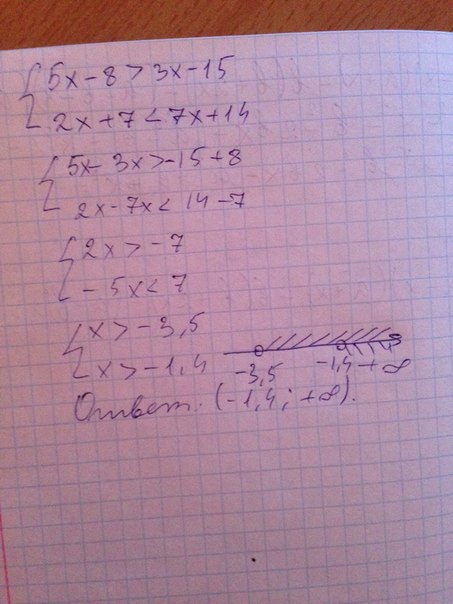 { 5x-8>3x-15
2x+7<7x+14
{ 5x-3x>-15+8
2x-7x<14-7
{ 2x>-7
-5x<7
{ x>-3,5
x>-1,4
-3,5 -1,4 +∞
Ответ: (-1,4; +∞).